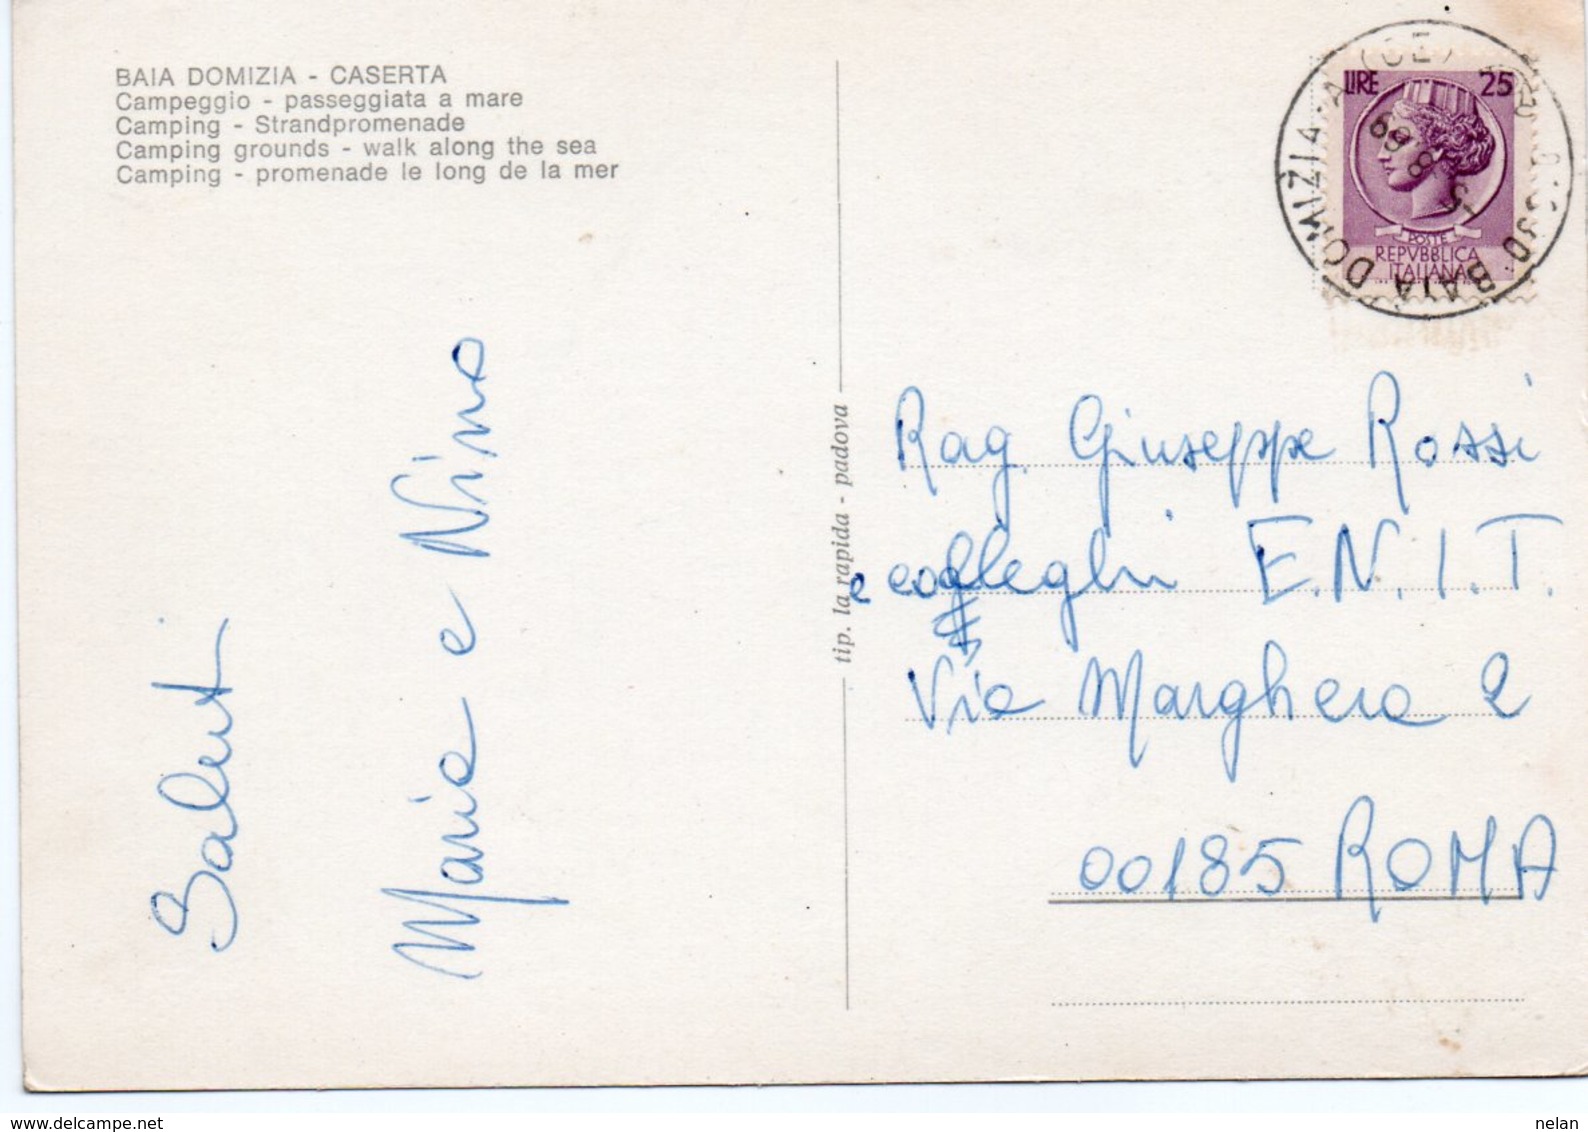 BAIA DOMIZIA - CASERTA
Campeggio - passeggiata a mare
Camping - Strandpromenade
Camping grounds - walk along the sea
Camping - promenade le long de la mer
Saluti
Maria e Nino
tip. la rapida - padova
LIRE 25
POSTE
REPVBBLICA
ITALIANA
BAIA DOMIZIA (CE)
5.8.69
Rag. Giuseppe Rossi
e colleghi E.N.I.T.
Via Marghera 2
00185 ROMA
www.delcampe.net
nelan